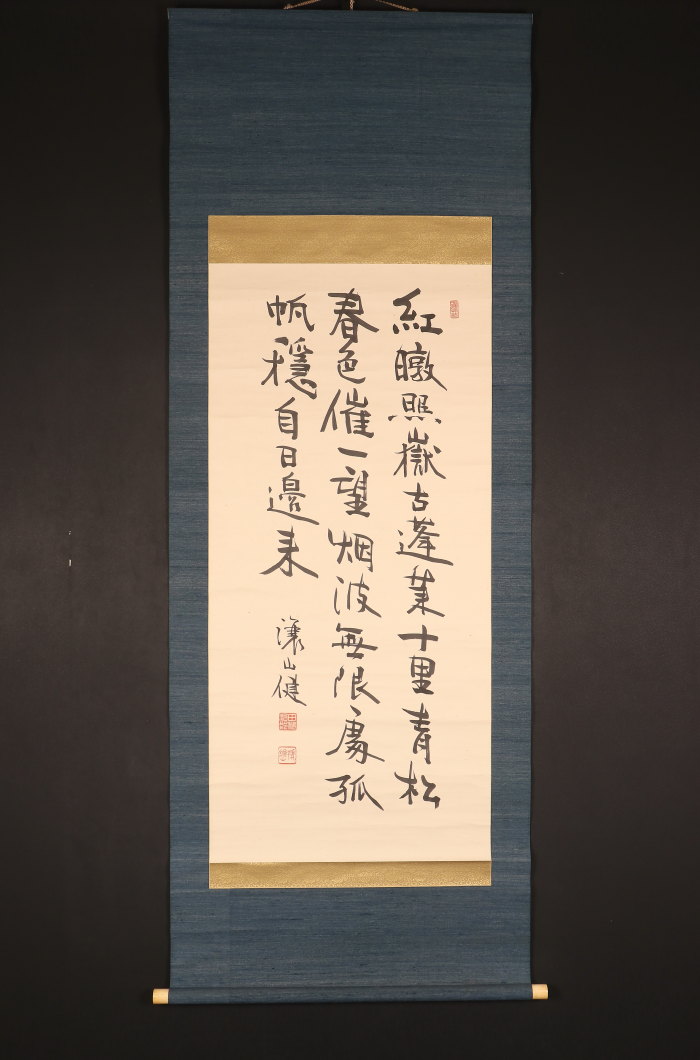 紅暾照嶽古蓬莱十里青松
春色催一望烟波無限處孤
帆穩自日邊来
濠山健